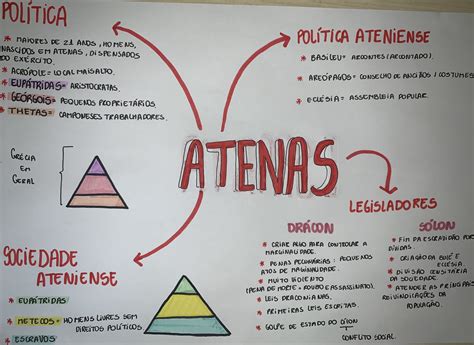 POLÍTICA
* MAIORES DE 21 ANOS, HOMENS,
NASCIDOS EM ATENAS, DISPENSADOS
DO EXÉRCITO.
* ACRÓPOLE = LOCAL MAIS ALTO.
* EUPÁTRIDAS = ARISTOCRATAS.
* GEÓRGOIS = PEQUENOS PROPRIETÁRIOS.
* THETAS = CAMPONESES TRABALHADORES.
POLÍTICA ATENIENSE
* BASILEU = ARCONTES (ARCONTADO).
* AREÓPAGOS = CONSELHO DE ANCIÃOS | COSTUMES
* ECLÉSIA = ASSEMBLEIA POPULAR.
GRÉCIA
EM
GERAL
ATENAS
LEGISLADORES
DRÁCON
* CRIAR ALGO PARA CONTROLAR A
MARGINALIDADE.
* PENAS PECUNIÁRIAS: PEQUENOS
ATOS DE MARGINALIDADE.
* MUITO VIOLENTO
(PENA DE MORTE = ROUBO E ASSASSINATO).
* LEIS DRACONIANAS.
* PRIMEIRAS LEIS ESCRITAS.
* GOLPE DE ESTADO DO
CONFLITO SOCIAL.
SÓLON
* FIM DA ESCRAVIDÃO POR
DÍVIDAS.
* CRIAÇÃO DA BULÉ E
ECLESIA.
* DIVISÃO CENSITÁRIA
DA SOCIEDADE.
* ATENDER AS PRINCIPAIS
REIVINDICAÇÕES DA
POPULAÇÃO.
SOCIEDADE
ATENIENSE
* EUPÁTRIDAS
* METECOS = HOMENS LIVRES SEM
DIREITOS POLÍTICOS.
* ESCRAVOS